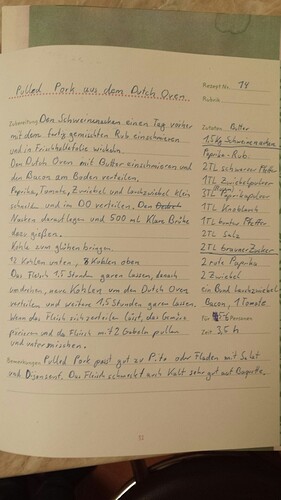 Pulled Pork aus dem Dutch Oven
Rezept Nr. 14
Rubrik
Zubereitung Den Schweinenacken einen Tag vorher
mit dem fertig gemischten Rub einschmieren
und in Frischhaltefolie wickeln.
Den Dutch Oven mit Butter einschmieren und
den Bacon am Boden verteilen.
Paprika, Tomate, Zwiebel und Lauchzwiebel klein
schneiden und im DO verteilen. Den
Nacken darauflegen und 500 ml Klare Brühe
dazu gießen.
Kohle zum glühen bringen.
12 Kohlen unten, 8 Kohlen oben
Das Fleisch 1,5 Stunden garen lassen, danach
umdrehen, neue Kohlen um den Dutch Oven
verteilen und weitere 1,5 Stunden garen lassen.
Wenn das Fleisch sich zerteilen lässt, das Gemüse
pürieren und das Fleisch mit 2 Gabeln pullen
und untermischen.
Zutaten Butter
1,5kg Schweinenacken
Paprika-Rub:
2TL schwarzer Pfeffer
1TL Zwiebelpulver
3TL Paprikapulver
1TL Knoblauch
1TL bunter Pfeffer
2TL Salz
2TL brauner Zucker
2 rote Paprika
2 Zwiebel
ein Bund Lauchzwiebel
Bacon, 1 Tomate
Für 5 Personen
Zeit 3,5 h
Bemerkungen Pulled Pork passt gut zu Pita oder Fladen mit Salat
und Das Fleisch schmeckt auch Kalt sehr gut auf Bagette.
52